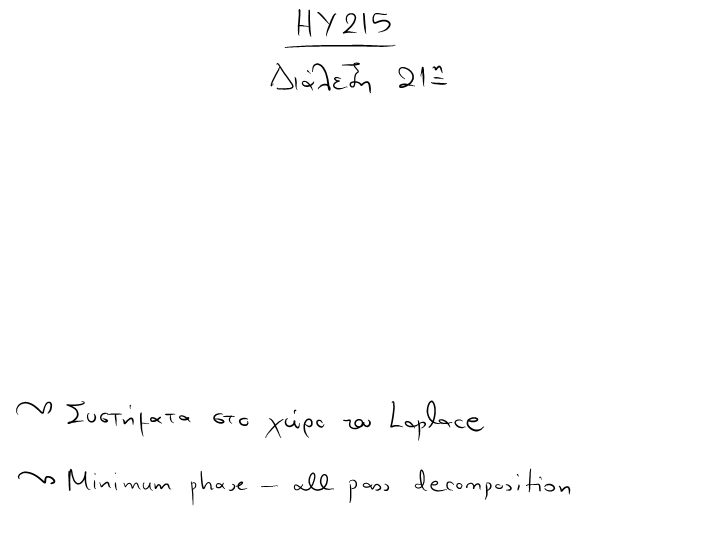 HY215
Διάλεξη 21η
~ Συστήματα στο χώρο του Laplace
~ Minimum phase – all pass decomposition